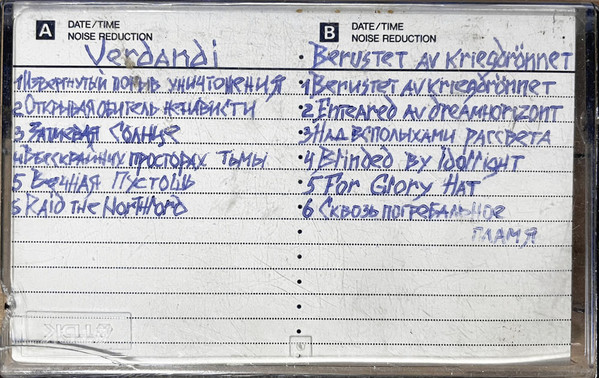 A DATE/TIME
NOISE REDUCTION
Verdandi
1 Извергнутый порыв уничтожения
2 Открывая обитель ненависти
3 Затмевая Солнце
4 В бескрайних просторах тьмы
5 Вечная Пустошь
6 Raid the Northford
B DATE/TIME
NOISE REDUCTION
Berustet av kriegdrönnet
1 Berustet av kriegdrönnet
2 Enteared av dreamhorizont
3 Над всполыхами рассвета
4 Blinded By Idollight
5 For Glory Hat
6 Сквозь погребальное
пламя
TDK